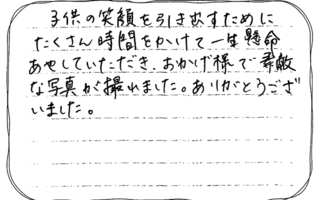 子供の笑顔を引き出すために
たくさん時間をかけて一生懸命
あやしていただき、おかげ様で素敵
な写真が撮れました。ありがとうござ
いました。